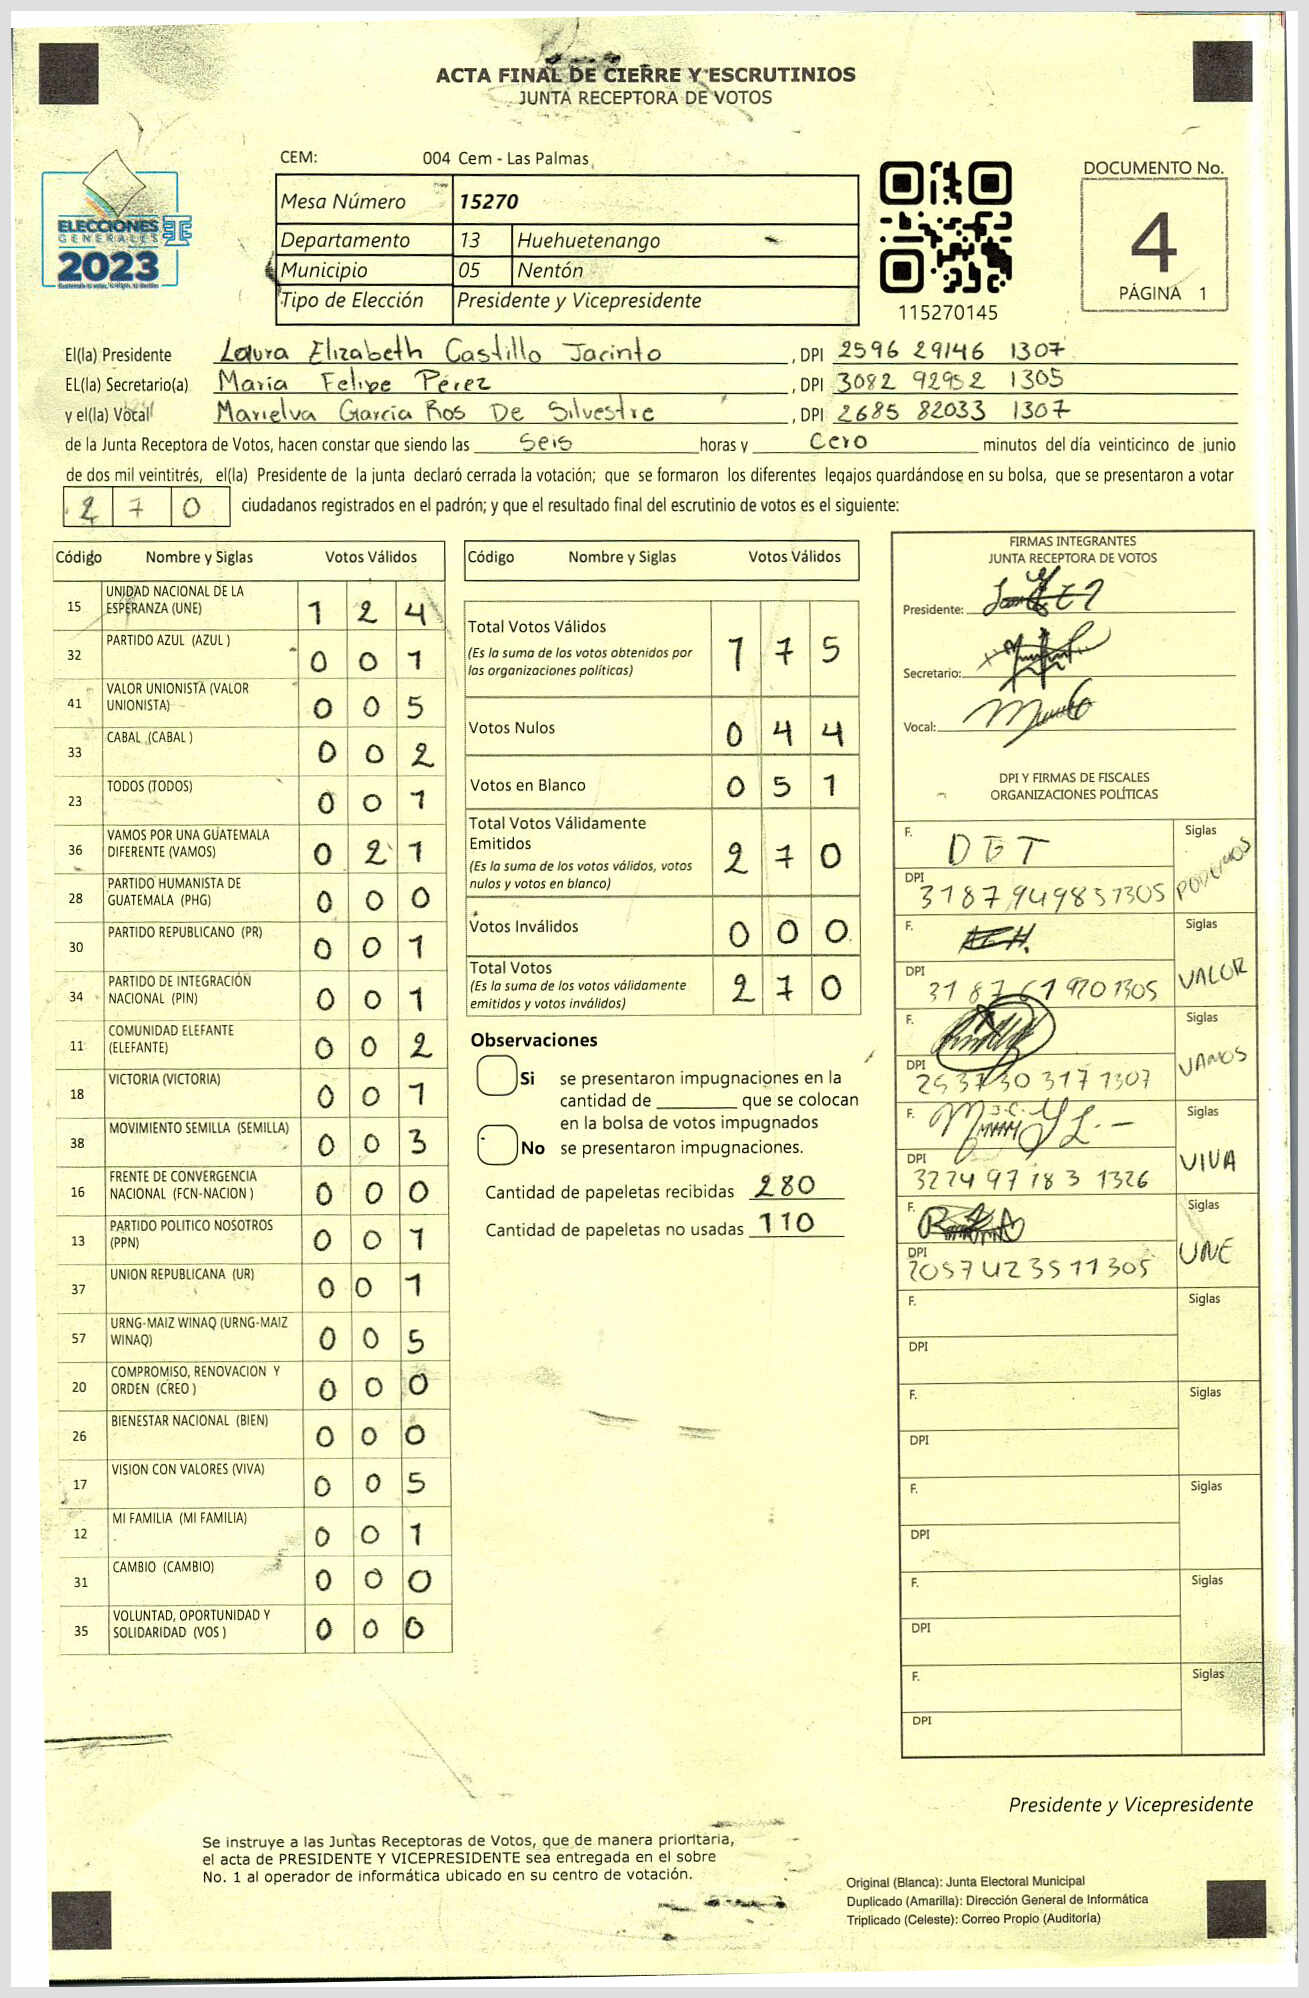 ACTA FINAL DE CIERRE Y ESCRUTINIOS
JUNTA RECEPTORA DE VOTOS
CEM: 004 Cem - Las Palmas
ELECCIONES
GENERALES
2023
Mesa Número 15270
Departamento 13 Huehuetenango
Municipio 05 Nentón
Tipo de Elección Presidente y Vicepresidente
115270145
DOCUMENTO No.
4
PÁGINA 1
El(la) Presidente Laura Elizabeth Castillo Jacinto, DPI 2596 29146 1307
EL(la) Secretario(a) Maria Felipe Pérez, DPI 3082 92952 1305
y el(la) Vocal Marielva Garcia Ros De Silvestre, DPI 2685 82033 1307
de la Junta Receptora de Votos, hacen constar que siendo las Seis horas y Cero minutos del día veinticinco de junio
de dos mil veintitrés, el(la) Presidente de la junta declaró cerrada la votación; que se formaron los diferentes legajos guardándose en su bolsa, que se presentaron a votar
270 ciudadanos registrados en el padrón; y que el resultado final del escrutinio de votos es el siguiente:
Código Nombre y Siglas Votos Válidos
15 UNIDAD NACIONAL DE LA ESPERANZA (UNE) 1 2 4
32 PARTIDO AZUL (AZUL ) 0 0 1
41 VALOR UNIONISTA (VALOR UNIONISTA) 0 0 5
33 CABAL (CABAL ) 0 0 2
23 TODOS (TODOS) 0 0 1
36 VAMOS POR UNA GUATEMALA DIFERENTE (VAMOS) 0 2 1
28 PARTIDO HUMANISTA DE GUATEMALA (PHG) 0 0 0
30 PARTIDO REPUBLICANO (PR) 0 0 1
34 PARTIDO DE INTEGRACIÓN NACIONAL (PIN) 0 0 1
11 COMUNIDAD ELEFANTE (ELEFANTE) 0 0 2
18 VICTORIA (VICTORIA) 0 0 1
38 MOVIMIENTO SEMILLA (SEMILLA) 0 0 3
16 FRENTE DE CONVERGENCIA NACIONAL (FCN-NACION ) 0 0 0
13 PARTIDO POLITICO NOSOTROS (PPN) 0 0 1
37 UNION REPUBLICANA (UR) 0 0 1
57 URNG-MAIZ WINAQ (URNG-MAIZ WINAQ) 0 0 5
20 COMPROMISO, RENOVACION Y ORDEN (CREO ) 0 0 0
26 BIENESTAR NACIONAL (BIEN) 0 0 0
17 VISION CON VALORES (VIVA) 0 0 5
12 MI FAMILIA (MI FAMILIA) 0 0 1
31 CAMBIO (CAMBIO) 0 0 0
35 VOLUNTAD, OPORTUNIDAD Y SOLIDARIDAD (VOS ) 0 0 0
Código Nombre y Siglas Votos Válidos
Total Votos Válidos 1 7 5
(Es la suma de los votos obtenidos por
las organizaciones políticas)
Votos Nulos 0 4 4
Votos en Blanco 0 5 1
Total Votos Válidamente
Emitidos 2 7 0
(Es la suma de los votos válidos, votos
nulos y votos en blanco)
Votos Inválidos 0 0 0
Total Votos 2 7 0
(Es la suma de los votos válidamente
emitidos y votos inválidos)
Observaciones
Si se presentaron impugnaciones en la
cantidad de ________ que se colocan
en la bolsa de votos impugnados
No se presentaron impugnaciones.
Cantidad de papeletas recibidas 280
Cantidad de papeletas no usadas 110
FIRMAS INTEGRANTES
JUNTA RECEPTORA DE VOTOS
Presidente:
Secretario:
Vocal:
DPI Y FIRMAS DE FISCALES
ORGANIZACIONES POLÍTICAS
F. DGT Siglas PODEMOS
DPI 3187949851305
F. Siglas VALOR
DPI 3187619201305
F. Siglas VAMOS
DPI 2537303171307
F. Siglas VIVA
DPI 3224971831326
F. Siglas UNE
DPI 2057423511305
F. Siglas
DPI
F. Siglas
DPI
F. Siglas
DPI
F. Siglas
DPI
F. Siglas
DPI
Presidente y Vicepresidente
Se instruye a las Juntas Receptoras de Votos, que de manera prioritaria,
el acta de PRESIDENTE Y VICEPRESIDENTE sea entregada en el sobre
No. 1 al operador de informática ubicado en su centro de votación.
Original (Blanca): Junta Electoral Municipal
Duplicado (Amarilla): Dirección General de Informática
Triplicado (Celeste): Correo Propio (Auditoría)